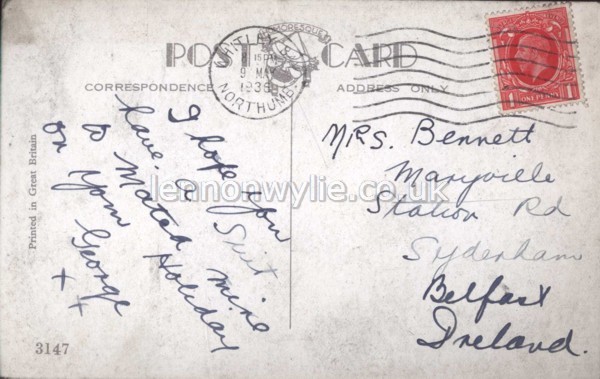 POST CARD
MORESQUE
WHITLEY B
15 PM
9 MAY
1936
NORTHUMB.
ONE PENNY
1 1
CORRESPONDENCE
ADDRESS ONLY
Printed in Great Britain
I hope you
have a Suit
to Match mine
on your Holiday
George
+ +
MRS. Bennett
Maryville
Station Rd
Sydenham
Belfast
Ireland.
3147
lennonwylie.co.uk